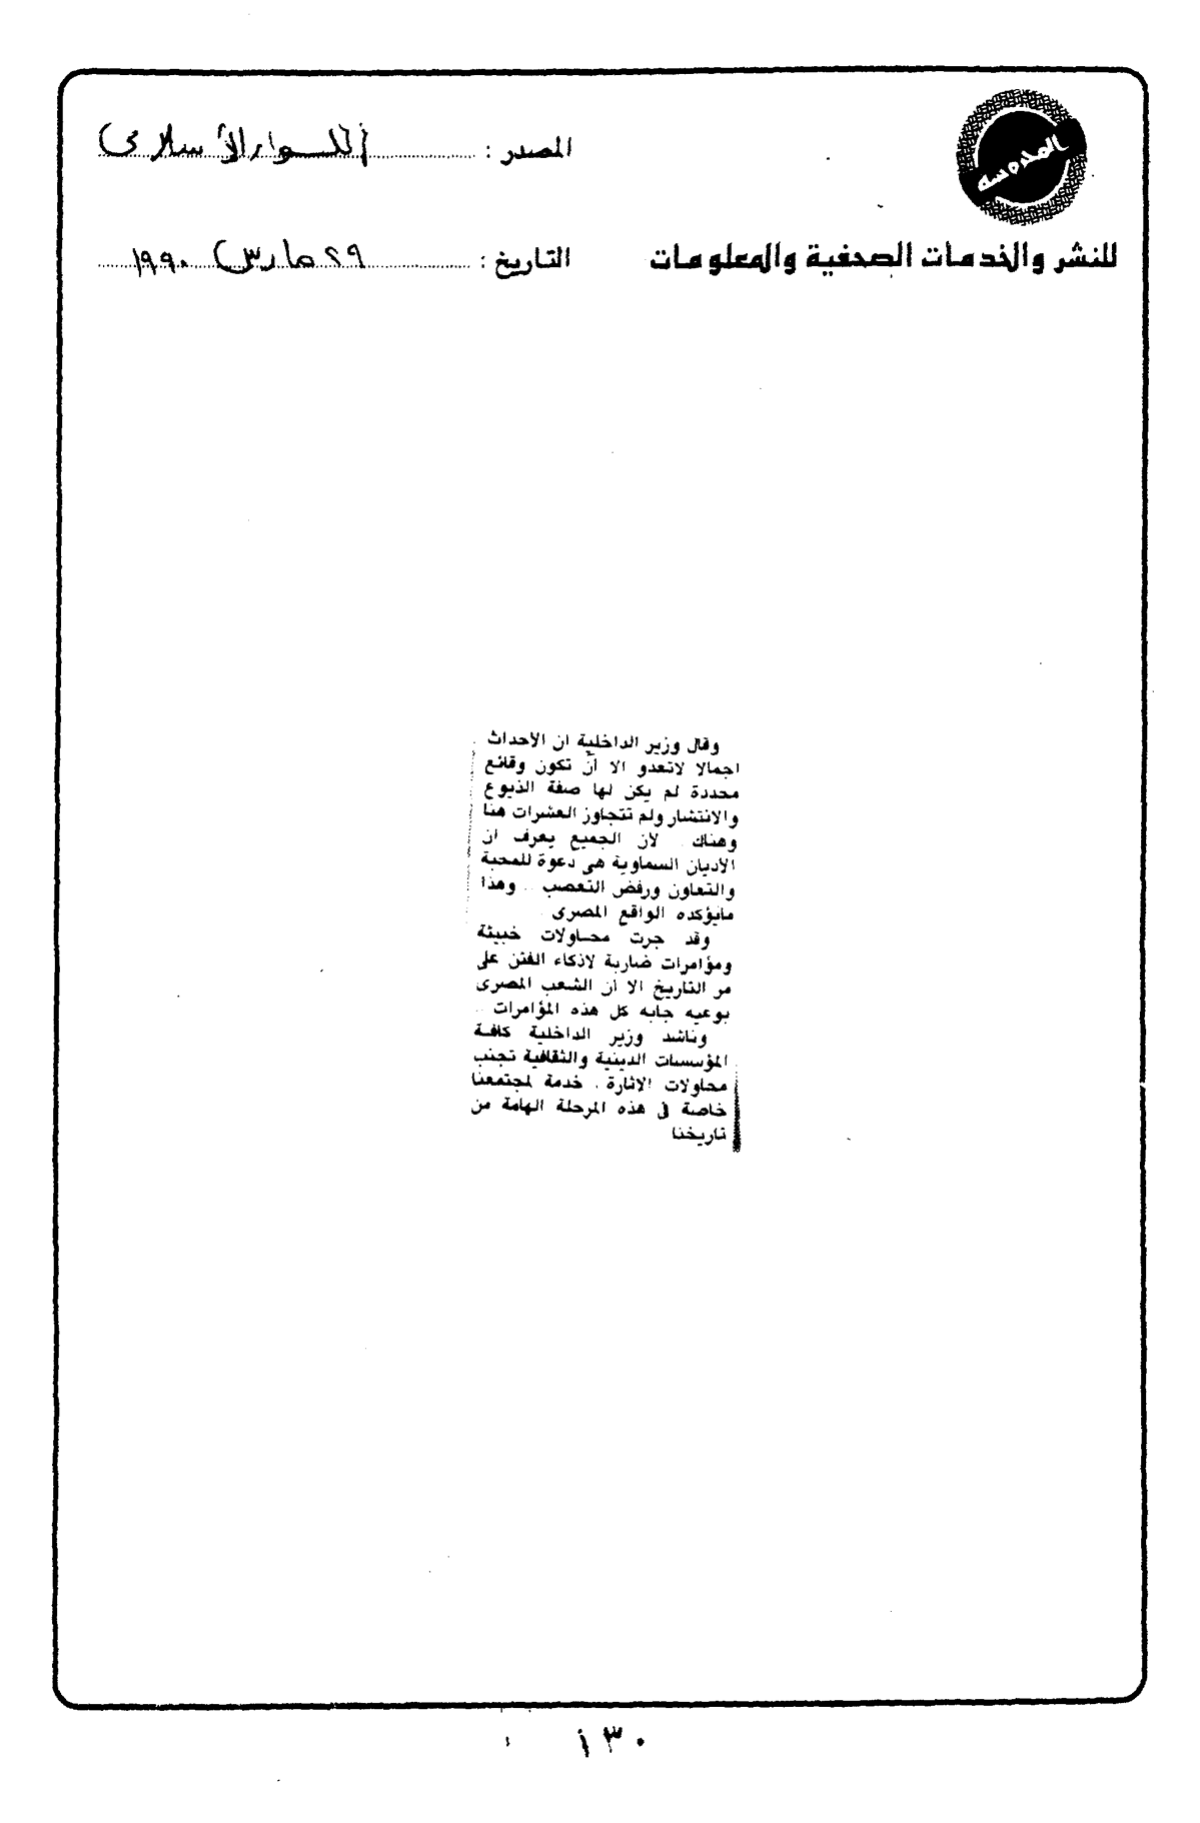 المحروسة
المصدر : اللواء الإسلامى
للنشر والخدمات الصحفية والمعلومات
التاريخ : ٢٩ مارس ١٩٩٠
وقال وزير الداخلية ان الأحداث
اجمالا لاتعدو الا أن تكون وقائع
محددة لم يكن لها صفة الذيوع
والانتشار ولم تتجاوز العشرات هنا
وهناك . لان الجميع يعرف ان
الأديان السماوية هى دعوة للمحبة
والتعاون ورفض التعصب .. وهذا
مايؤكده الواقع المصرى .
وقد جرت محاولات خبيثة
ومؤامرات ضارية لاذكاء الفتن على
مر التاريخ الا ان الشعب المصرى
بوعيه جابه كل هذه المؤامرات ..
وناشد وزير الداخلية كافة
المؤسسات الدينية والثقافية تجنب
محاولات الاثارة . خدمة لمجتمعنا
خاصة فى هذه المرحلة الهامة من
تاريخنا
١٣٠